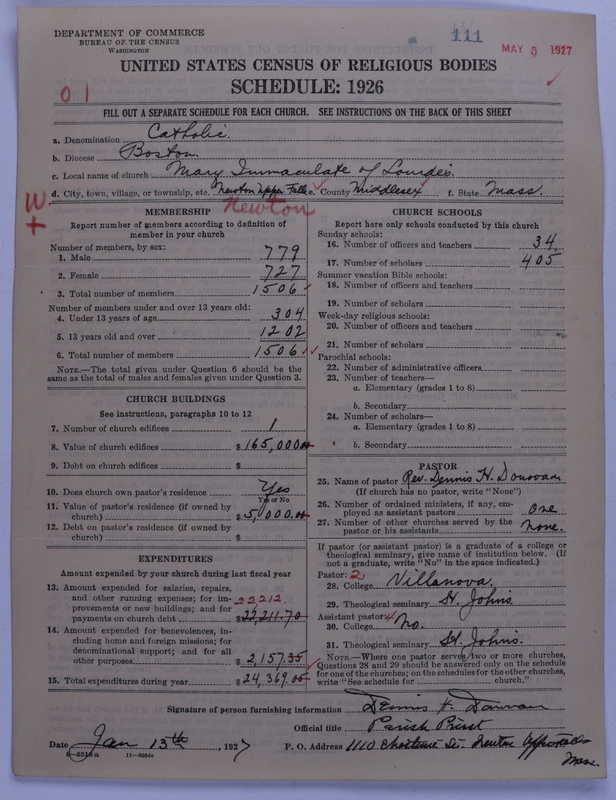 DEPARTMENT OF COMMERCE
BUREAU OF THE CENSUS
WASHINGTON
111
MAY 5 1927
UNITED STATES CENSUS OF RELIGIOUS BODIES
SCHEDULE: 1926
01
FILL OUT A SEPARATE SCHEDULE FOR EACH CHURCH. SEE INSTRUCTIONS ON THE BACK OF THIS SHEET
a. Denomination Catholic.
b. Diocese Boston
c. Local name of church Mary Immaculate of Lourdes.
d. City, town, village, or township, etc. Newton Upper Falls. County Middlesex f. State Mass.
W
+
Newton
MEMBERSHIP
Report number of members according to definition of
member in your church
Number of members, by sex:
1. Male 779
2. Female 727
3. Total number of members 1506
Number of members under and over 13 years old:
4. Under 13 years of age 304
5. 13 years old and over 1202
6. Total number of members 1506
NOTE.—The total given under Question 6 should be
same as the total of males and females given under Question 3.
CHURCH BUILDINGS
See instructions, paragraphs 10 to 12
7. Number of church edifices 1
8. Value of church edifices $165,000.00
9. Debt on church edifices $
10. Does church own pastor's residence Yes
Yes or No
11. Value of pastor's residence (if owned by
church) $5,000.00
12. Debt on pastor's residence (if owned by
church) $
EXPENDITURES
Amount expended by your church during last fiscal year
13. Amount expended for salaries, repairs,
and other running expenses; for im-
provements or new buildings; and for
payments on church debt $22,211.70
22212
14. Amount expended for benevolences, in-
cluding home and foreign missions; for
denominational support; and for all
other purposes $2,157.35
15. Total expenditures during year $24,369.05
CHURCH SCHOOLS
Report here only schools conducted by this church
Sunday schools:
16. Number of officers and teachers 34
17. Number of scholars 405
Summer vacation Bible schools:
18. Number of officers and teachers
19. Number of scholars
Week-day religious schools:
20. Number of officers and teachers
21. Number of scholars
Parochial schools:
22. Number of administrative officers
23. Number of teachers—
a. Elementary (grades 1 to 8)
b. Secondary
24. Number of scholars—
a. Elementary (grades 1 to 8)
b. Secondary
PASTOR
25. Name of pastor Rev. Dennis H. Donovan
(If church has no pastor, write "None")
26. Number of ordained ministers, if any, em-
ployed as assistant pastors one
27. Number of other churches served by the
pastor or his assistants none.
If pastor (or assistant pastor) is a graduate of a college or
theological seminary, give name of institution below. (If
not a graduate, write "No" in the space indicated.)
Pastor: 2
28. College Villanova.
29. Theological seminary St. Johns.
Assistant pastor:
30. College No.
31. Theological seminary St. Johns.
NOTE.—Where one pastor serves two or more churches,
Questions 28 and 29 should be answered only on the schedule
for one of the churches; on the schedules for the other churches,
write "See schedule for church."
Signature of person furnishing information Dennis H. Donovan
Official title Parish Priest
Date Jan 13th, 1927
P. O. Address 1110 Chestnut St. Newton Upper Falls
Mass.